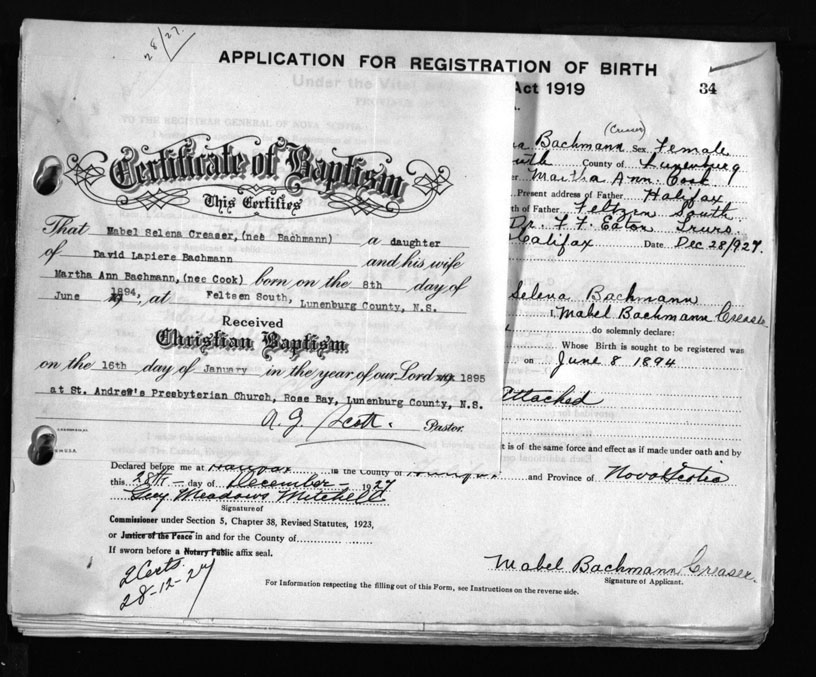 28/27.
APPLICATION FOR REGISTRATION OF BIRTH
Under the Vital
Act 1919
34
TO THE REGISTRAR GENERAL OF NOVA SCOTIA
Certificate of Baptism
This Certifies
That Mabel Selena Creaser, (neé Bachmann) a daughter
of David Lapiere Bachmann and his wife
Martha Ann Bachmann, (nee Cook) born on the 8th day of
June 1894, at Feltsen South, Lunenburg County, N.S.
Received
Christian Baptism
on the 16th day of January in the year of our Lord 1895
at St. Andrew's Presbyterian Church, Rose Bay, Lunenburg County, N.S.
Pastor.
(Creaser)
Bachmann Sex, Female
County of Lunenburg
Martha Ann Cook
Present address of Father Halifax
th of Father, Feltzen South
Dr. F. F. Eaton Truro.
Halifax Date Dec 28/927.
Selena Bachmann
I, Mabel Bachmann Creaser
do solemnly declare:
Whose Birth is sought to be registered was
on June 8 1894
Attached
t is of the same force and effect as if made under oath and by
Declared before me at Halifax in the County of Halifax and Province of Nova Scotia
this 28th day of December 1927
Meadows Mitchell
Signature of
Commissioner under Section 5, Chapter 38, Revised Statutes, 1923,
or Justice of the Peace in and for the County of
If sworn before a Notary Public affix seal.
2 Certs.
28-12-27
Mabel Bachmann Creaser.
Signature of Applicant.
For Information respecting the filling out of this Form, see Instructions on the reverse side.